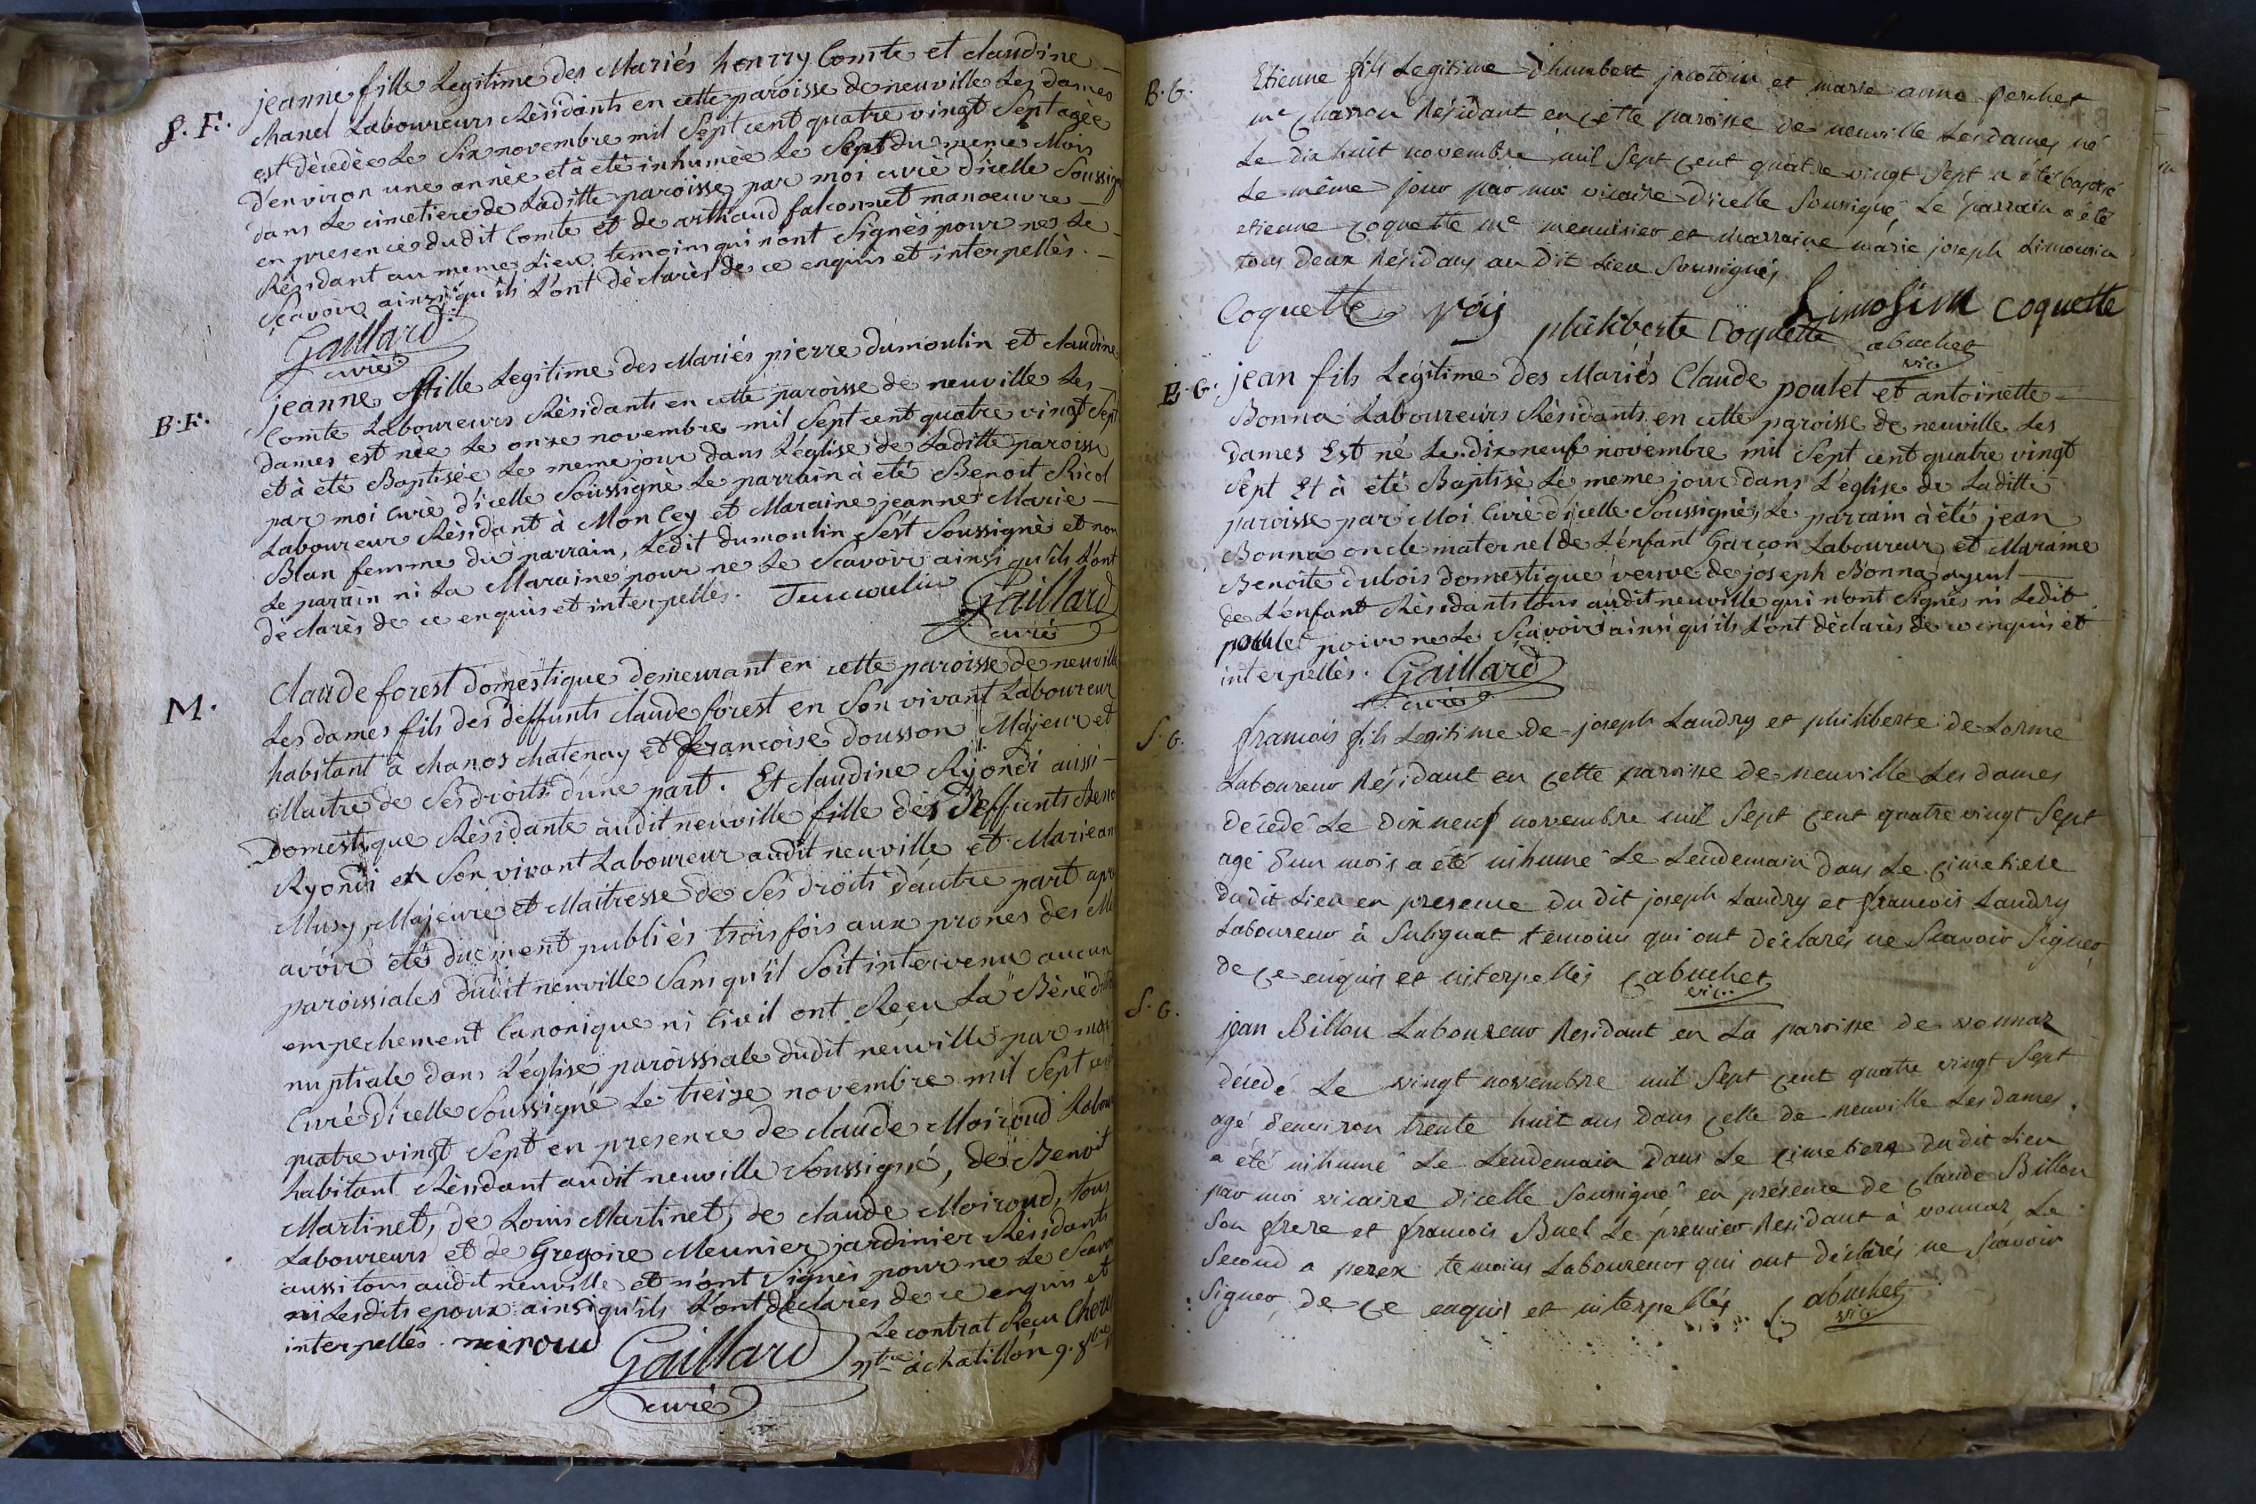 S. F. jeanne fille Legitime des Mariés henrry Comte et claudine
chanel Laboureurs Résidants en cette paroisse de neuville Les dames
est dècedèe Le Six novembre mil Sept cent quatre vingt Sept agèe
d'environ une annèe et à etè inhumèe Le Sept du meme Mois
dans Le cimetiere de Laditte paroisse par moi curè d'icelle Soussigné
en presence dudit Comte et de arthaud falconnet manoeuvre
Résidant au meme Lieu, temoins qui n'ont Signès pour ne Le
Sçavoir ainsi qu'ils L'ont dèclarès de ce enquis et interpellès.
Gaillard
curé
B. F. jeanne fille Legitime des Mariés pierre dumoulin et claudine
Comte Laboureurs Résidants en cette paroisse de neuville Les
dames est nèe Le onze novembre mil Sept cent quatre vingt Sept
et à étè Baptisèe Le meme jour dans L'église de Laditte paroisse
par moi Curè d'icelle Soussignè Le parrain à été Benoit Ricol
Laboureur Résidant à Moncey et Maraine jeanne Marie
Blan femme du parrain, Ledit dumoulin S'est Soussignè et non
Le parrain ni La Maraine pour ne Le Scavoir ainsi qu'ils L'ont
dèclarès de ce enquis et interpellès. Dumoulin Gaillard
curè
M. Claude forest domestique demeurant en cette paroisse de neuville
Les dames fils des deffunts claude forest en Son vivant Laboureur
habitant à chanos chatenay et francoise dousson Majeur et
Maitre de Ses droits d'une part. Et claudine Ryondi aussi
Domestique Résidante audit neuville fille des deffunts Beno
Ryondi en Son vivant Laboureur audit neuville et Marie an
Musy, Majeure et Maitresse de Ses droits d'autre part apr
avoir étés duement publiés trois fois aux prones des Me
paroissiales dudit neuville Sans qu'il Soit intervenu aucun
empechement Canonique ni Civil ont Reçu La Bénédi
nuptiale dans L'églisè paroissiale dudit neuville par moi
Curé d'icelle Soussigné Le treize novembre mil Sept cent
quatre vingt Sept en presence de claude Moiroud Labou
habitant Résidant audit neuville Soussigné, de Benoit
Martinet, de Louis Martinet, de claude Moiroud, tous
Laboureurs et de Gregoire Meunier jardinier Résidants
aussi tous audit neuville et n'ont Signès pour ne Le Scavoi
ni Lesdits epoux ainsi qu'ils L'ont déclarés de ce enquis et
interpellès. miroud Gaillard Le contrat Reçu
curè ntre à chatillon 9. 8bre
B. G. Etienne fils Legitime d'humbert jacotin et marie anne perchet
me Charron Résidant en cette paroisse de neuville Les dames né
Le dix huit novembre mil Sept cent quatre vingt Sept a été baptisé
Le même jour par moi vicaire d'icelle Soussigné Le parrain a été
etienne coquette me menuisier et marraine marie joseph Limousin
tous deux Résidans au dit Lieu Soussignés
Coquette Limosin coquette
philiberte coquette Cabuchet
vic.
B. G. jean fils Légitime des Mariés Claude poulet et antoinette
Bonna Laboureurs Résidants en cette paroisse de neuville Les
dames Est né Le dix neuf novembre mil Sept cent quatre vingt
Sept Et à été Baptisé Le meme jour dans L'église de Laditte
paroisse par Moi Curé d'icelle Soussigné, Le parrain à été jean
Bonna oncle maternel de L'enfant Garcon Laboureur, et Maraine
Benoite dubois domestique veuve de joseph Bonna ayeul
de L'enfant Résidants tous audit neuville qui n'ont Signés ni Ledit
poulet pour ne Le Sçavoir ainsi qu'ils L'ont déclarés de ce enquis et
interpellés. Gaillard
curé
S. G. francois fils Legitime de joseph Laudry et philiberte de Lorme
Laboureur Résidant en cette paroisse de neuville Les dames
décédé Le dix neuf novembre mil Sept cent quatre vingt Sept
agé d'un mois a été inhumé Le Lendemain dans Le cimetiere
du dit Lieu en presence du dit joseph Laudry et francois Laudry
Laboureur à Sulignat témoins qui ont déclarés ne Scavoir Signer
de ce enquis et interpellés Cabuchet
vic.
S. G. jean Billon Laboureur Residant en La paroisse de vonnaz
décedé Le vingt novembre mil Sept cent quatre vingt Sept
agé d'environ trente huit ans dans celle de neuville Les dames
a été inhumé Le Lendemain dans Le cimetiere du dit Lieu
par moi vicaire d'icelle Soussigné en présence de Claude Billon
Son frere et francois Buel Le premier Residant à vonnaz Le
Second a perex temoins Laboureurs qui ont déclarés ne Scavoir
Signer, de ce enquis et interpellés Cabuchet
vic.